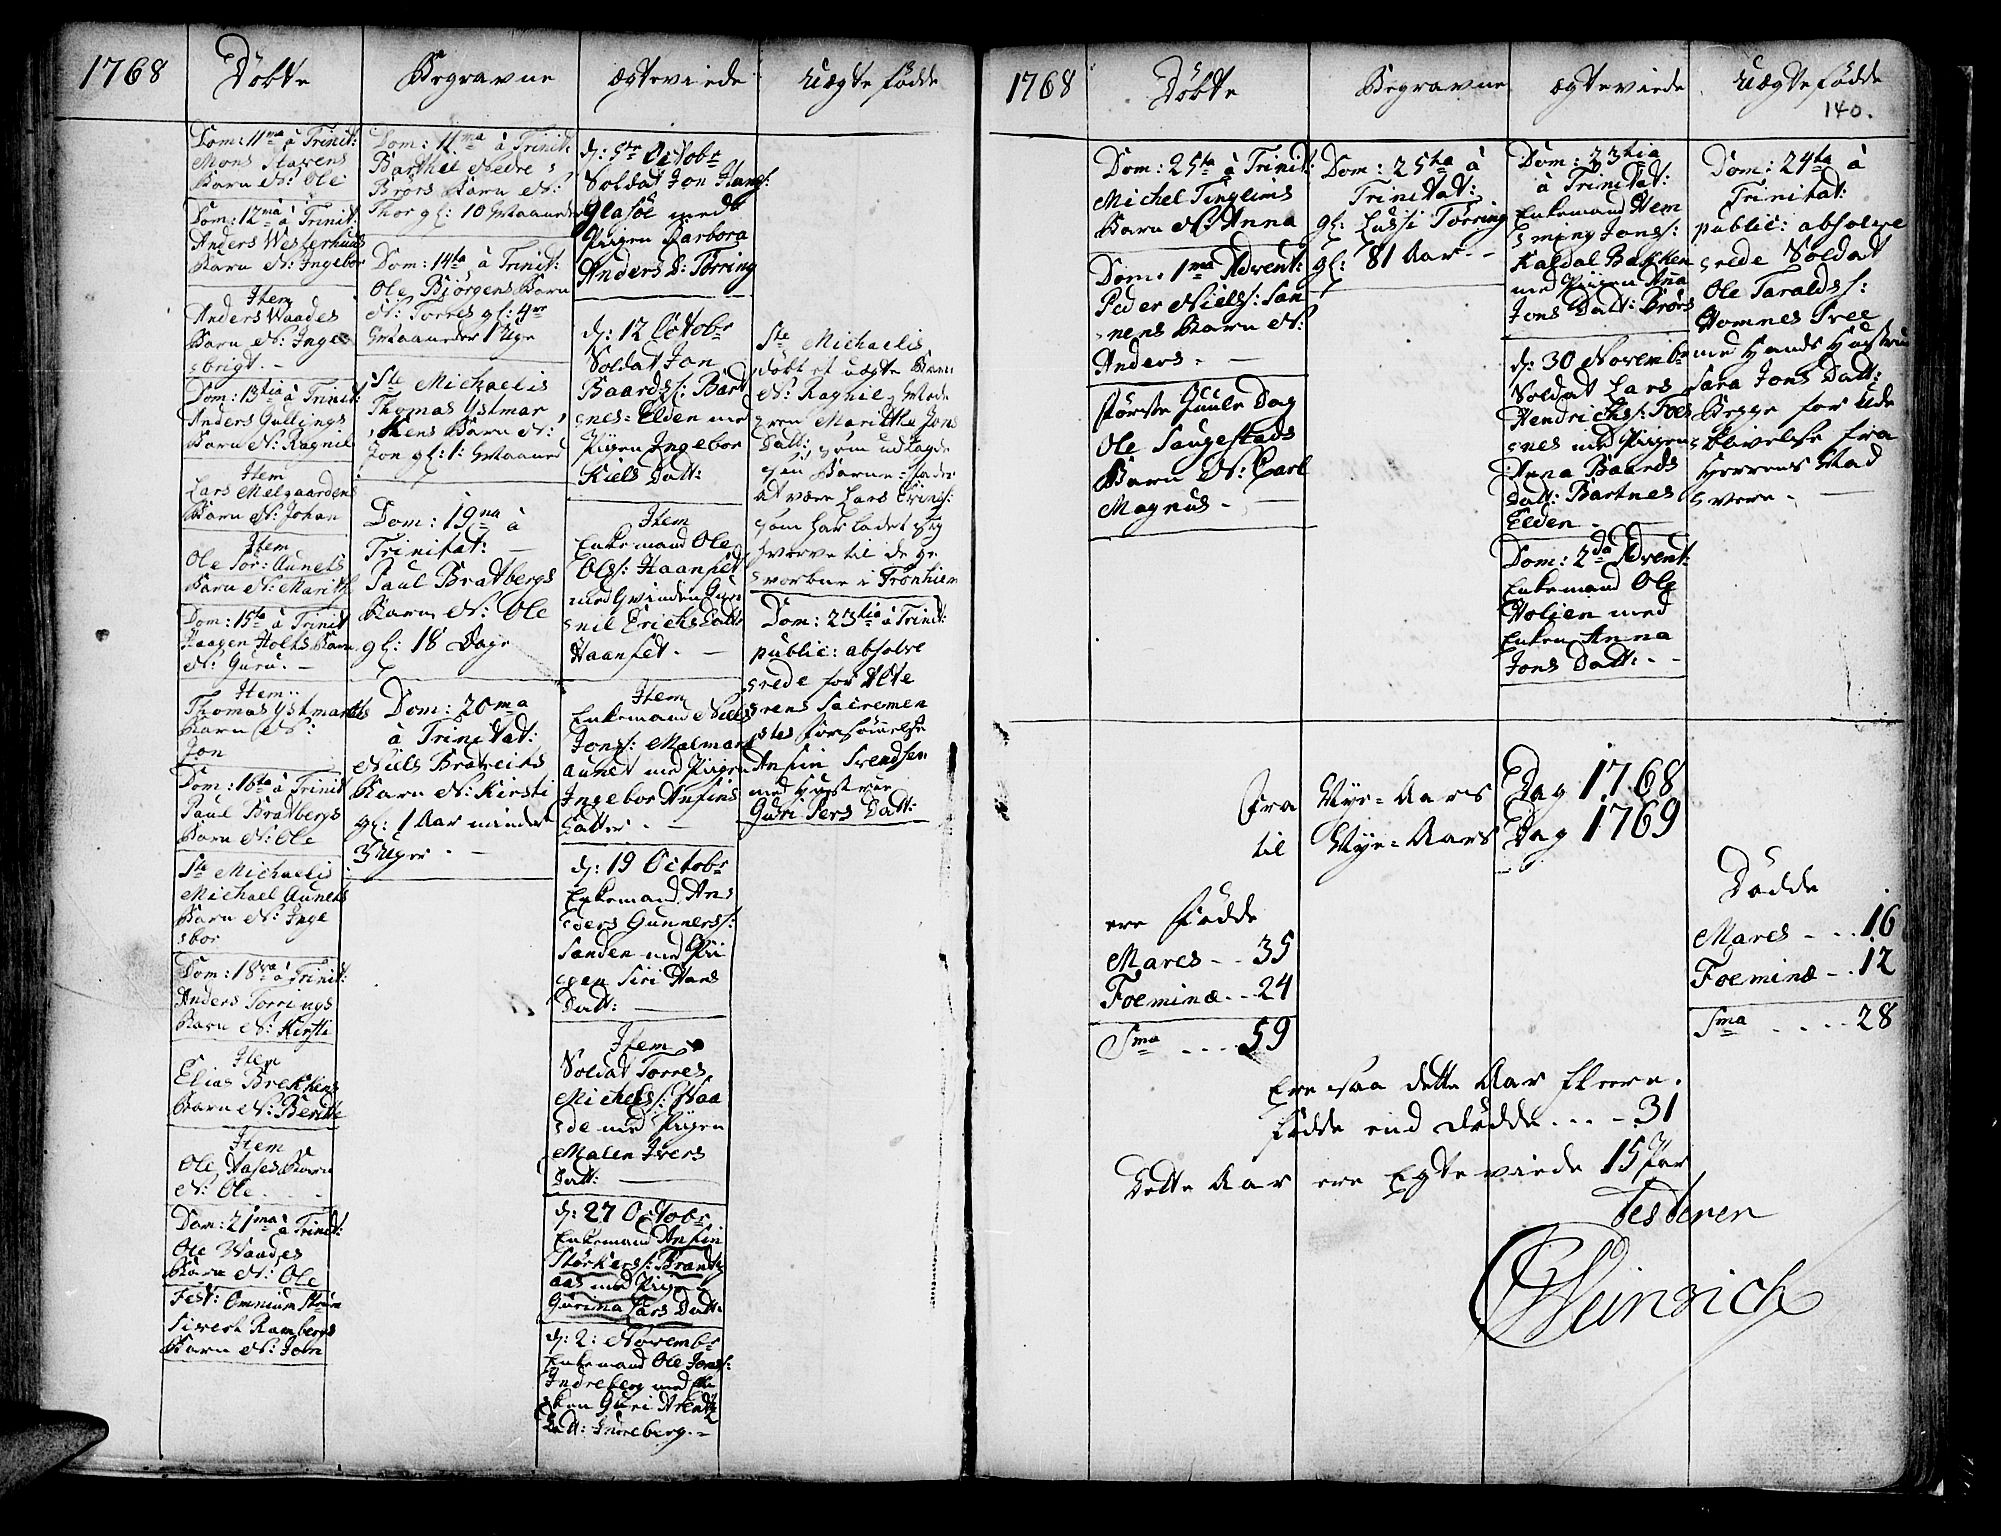 1768
Döbte
Begravne
ægteviede
Uægte fødde
Dom: 11ma à Trinit:
Mons Stavens
Barn N: Ole
Dom: 12ma à Trinit:
Anders Westerhuus
Barn N: Ingebor
Item
Anders Waades
Barn N: Inge
sbrigt. -
Dom: 13tia à Trinit:
Anders Gullings
Barn N: Ragnil
Item
Lars Melgaardens
Barn N: Johan
Item
Ole Sör: Aunets
Barn N: Marith
Dom: 15ta à Trinit
Haagen Holtes Barn
N: Guru. -
Item
Thomas Ystmarkens
Barn N:
Jon
Dom: 16ta à Trinit
Paul Bratbergs
Barn N: Ole
Ste Michaelis
Michael Aunets
Barn N: Inge
sbor
Dom: 18va à Trinit:
Anders Torrings
Barn N: Kirsti
Item
Elias Brekkens
Barn N: Berith
Item
Ole Aases Barn
N: Ole
Dom: 21ma à Trinit:
Ole Waades
Barn N: Ole
Fest: Omnium
Sivert Rambergs
Barn N: Jon
Dom: 11ma à Trinit:
Barthel Nedre
Brörs Barn N:
Thor gl: 10 Maaneder
Dom: 14ta à Trinit:
Ole Bjorgens Barn
N: Torres gl: 4re
Maaneder 1 Uge
Ste Michaelis
Thomas Ystmar
skens Barn N:
Jon gl: 1: Maaned
Dom: 19na à
Trinitat:
Paul Bratbergs
Barn N: Ole
gl: 18 Dage
Dom: 20ma
à Trinitat:
Niels Bratreits
Barn N: Kirsti
gl: 1 Aar mindre
3 Uger -
d: 5te Octobr
Soldat Jon Hans:
Glasöe med
Pigen Barbora
Anders D: Törring
d: 12 Octobr
Soldat Jon
Baards: Bart
snes-Elden med
Pigen Ingebor
Kiels Datt:
Item
Enkemand Ole
Ols: Haanset
med Qvinden Gun
snil Erichs Datt
Haanset. -
Item
Enkemand Niels
Jons: Malmark
aunet med Pigen
Ingebor Anfins
Datter -
d: 19 Octobr
Enkemand An
sders Gunners:
Sanden med Pi
sgen Siri Hans
Datt:
Item
Soldat Torres
Michels: Waa
sde med Pigen
Malen Ivers
Datt:
d: 27 Octobr
Enkemand Anfin
Störkers: Brandtz
aas med Pigen
Gurina Lars Datt:
d: 2: Novembr
Enkemand Ole Jons:
Indreberg med En
sken Guri Arentz
Datt: Indreberg. -
Ste Michaelis
döbt et uægte Barn
N: Ragnil, Mode
sren Maritha Jons
Datt: som udlagde
sin Barne-Fader
at være Lars
som har ladet sig
hverve til de ge
svorbne i Tronhiem
Dom: 23tia à Trinit:
public: absolve
srede for Alte
srens Sacremen
stes Forsømmelse
Anfin Svendsen
med Hustrue
Guri Pers Datt:
1768
Döbte
Begravne
ægteviede
Uægte fødde
140.
Dom: 25ta à Trinit:
Michel Tinglums
Barn N: Anna
Dom: 1ma Advent:
Peder Niels: San
snens Barn N:
Anders. -
Første Juule Dag
Ole Saugestads
Barn N: Carl
Magnus -
Dom: 25ta à
Trinitat:
gl: Lussi Törring
gl: 81 Aar -
Dom: 23tia
à Trinitat:
Enkemand Hem
sming Jons:
Kaldal Bakken
med Pigen Ana
Jons Datt: Brörs
d: 30 Novembr
Soldat Lars
Hendrichs: Foes
snes med Pigen
Anna Baards
Datt: Bartnes
Elden -
Dom: 2da Advent:
Enkemand Ole
Holien med
Enken Anna
Jons Datt: -
Dom: 24ta à
Trinitat:
public: absolve
srede Soldat
Ole Taralds:
Homnes Tree
med Hands Hustrue
Sara Jons Datt:
Begge for Ude
sblivelse fra
Herrens Nad
svere. -
fra Nye-Aars Dag 1768
til Nye-Aars Dag 1769
ere Fødde
Mares - - 35
Foeminæ - - 24
Sma - - - 59
Dødde
Mares - - - 16
Foeminæ - - 12
Sma - - - - 28
Ere saa dette Aar fleere
fødde end dødde - - - 31
Dette Aar ere Egteviede 15 Par
Testerer
Heinrich